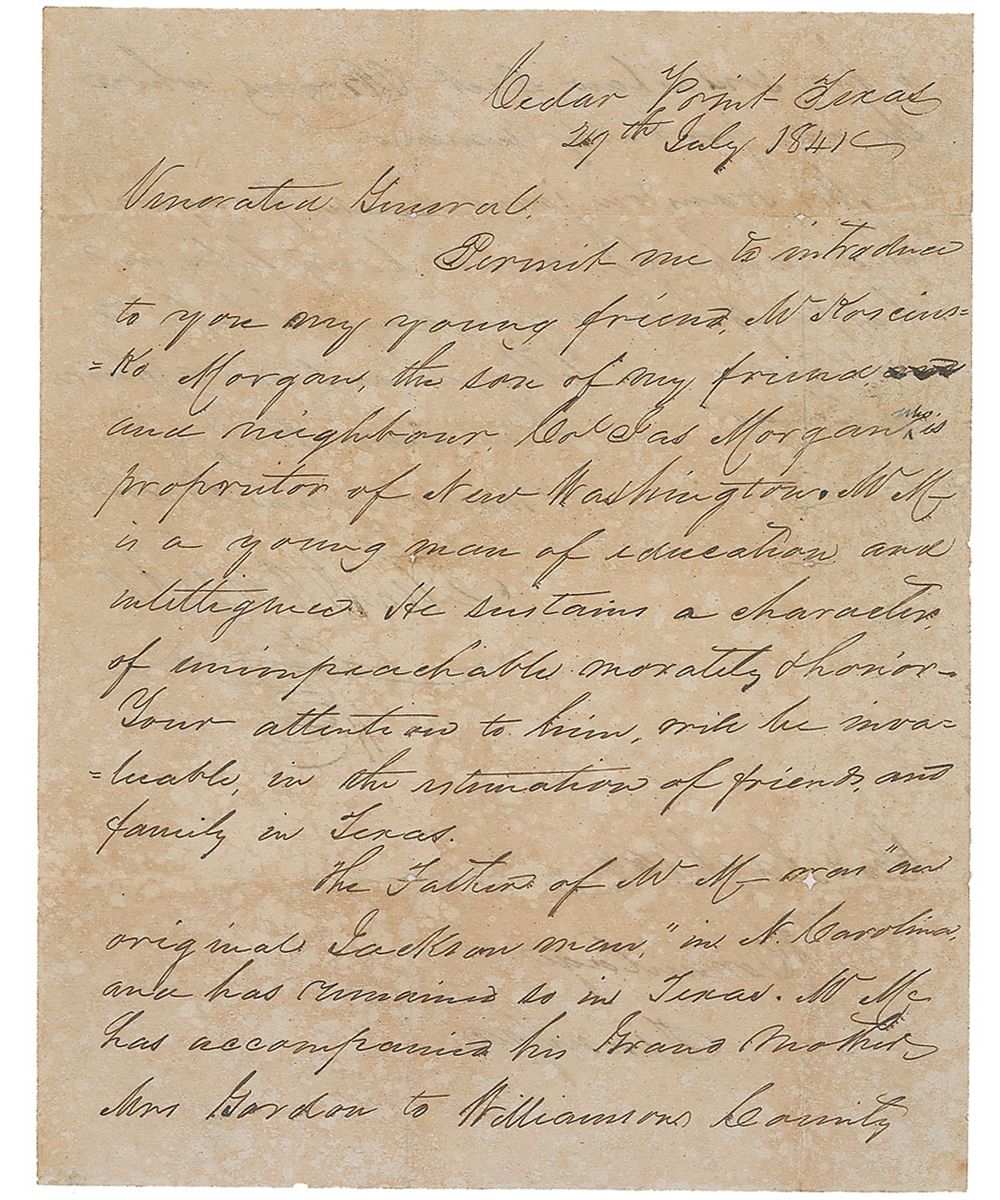 Cedar Point Texas
29th July 1841
Venerated General,
Permit me to introduce
to you my young friend, Mr Koscius=
=ko Morgan, the son of my friend
and neighbour, Col Jas Morgan who is
proprietor of New Washington. Mr M
is a young man of education and
intelligence. He sustains a character
of unimpeachable morality & honor.
Your attention to him, will be inva=
=luable, in the estimation of friends, and
family in Texas.
The Father of Mr M was "an
original Jackson man," in N. Carolina,
and has remained so in Texas. Mr M.
has accompanied his Grand Mother
Mrs Gordon to Williamson County